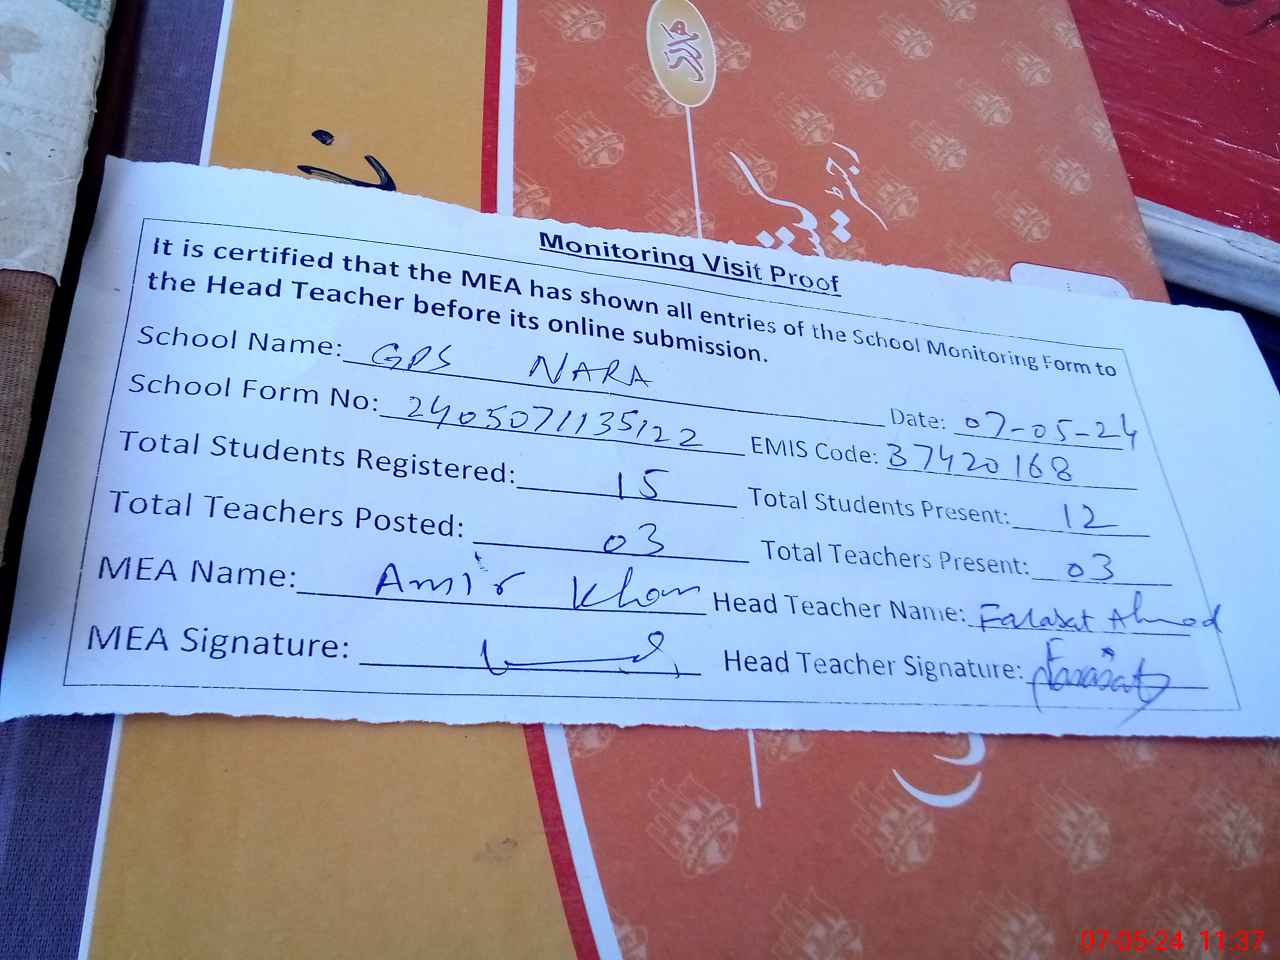 Monitoring Visit Proof
It is certified that the MEA has shown all entries of the School Monitoring Form to
the Head Teacher before its online submission.
School Name: GPS NARA Date: 07-05-24
School Form No: 2405071135122 EMIS Code: 37420168
Total Students Registered: 15 Total Students Present: 12
Total Teachers Posted: 03 Total Teachers Present: 03
MEA Name: Amir Khan Head Teacher Name: Farasat Ahmed
MEA Signature: Head Teacher Signature: Farasat
07-05-24 11:37